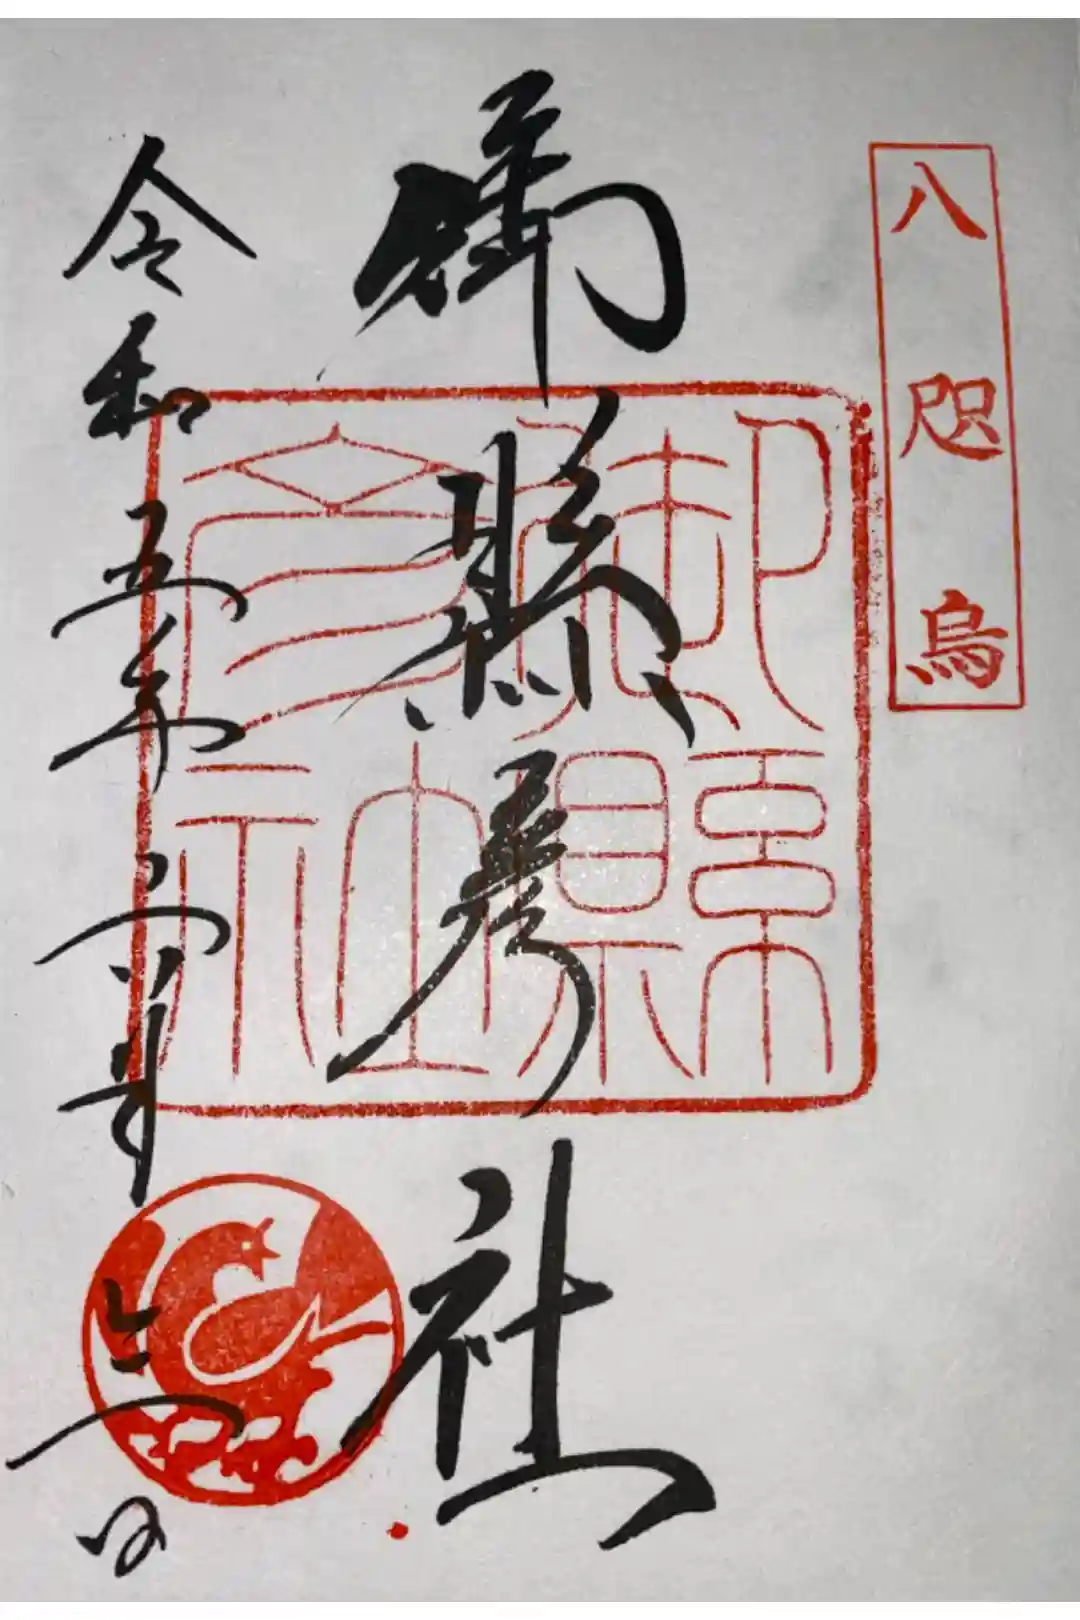 八咫烏
御縣彦社
御縣彦社
令和五年六月 日